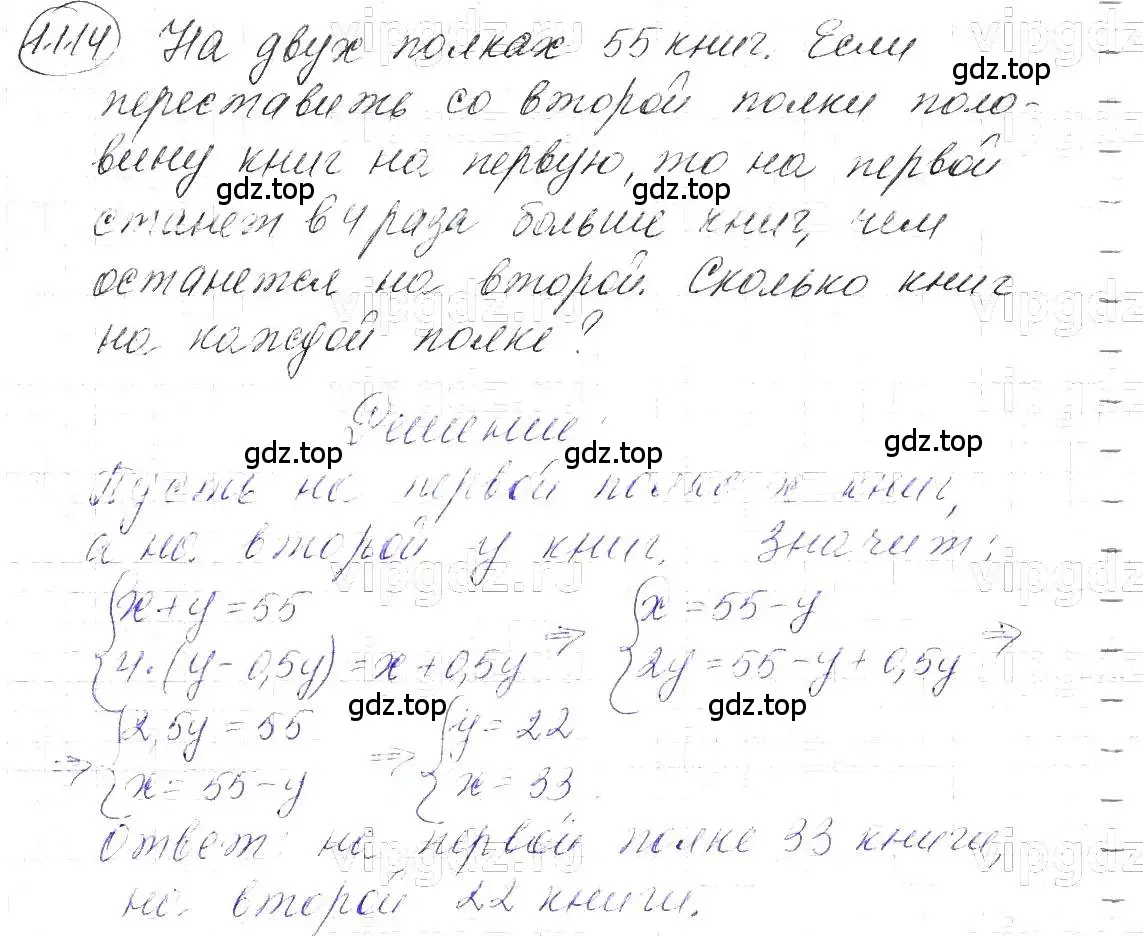 1.114 На двух полках 55 книг. Если
переставить со второй полки поло-
вину книг на первую, то на первой
станет в 4 раза больше книг, чем
останется на второй. Сколько книг
на каждой полке?
Решение:
Пусть на первой полке x книг,
а на второй y книг. Значит:
{x+y=55 {x=55-y
{4·(y-0,5y)=x+0,5y => {2y=55-y+0,5y =>
{2,5y=55 {y=22
=> {x=55-y => {x=33.
Ответ: на первой полке 33 книги,
на второй 22 книги.
gdz.top
gdz.top
gdz.top
gdz.top
gdz.top
gdz.top
gdz.top
gdz.top
vipgdz.ru
vipgdz
vipgdz.ru
vipgdz
vipgdz.ru
vipgdz
vipgdz.ru
vipgdz
vipgdz.ru
vipgdz
vipgdz.ru
vipgdz
vipgdz.ru
vipgdz